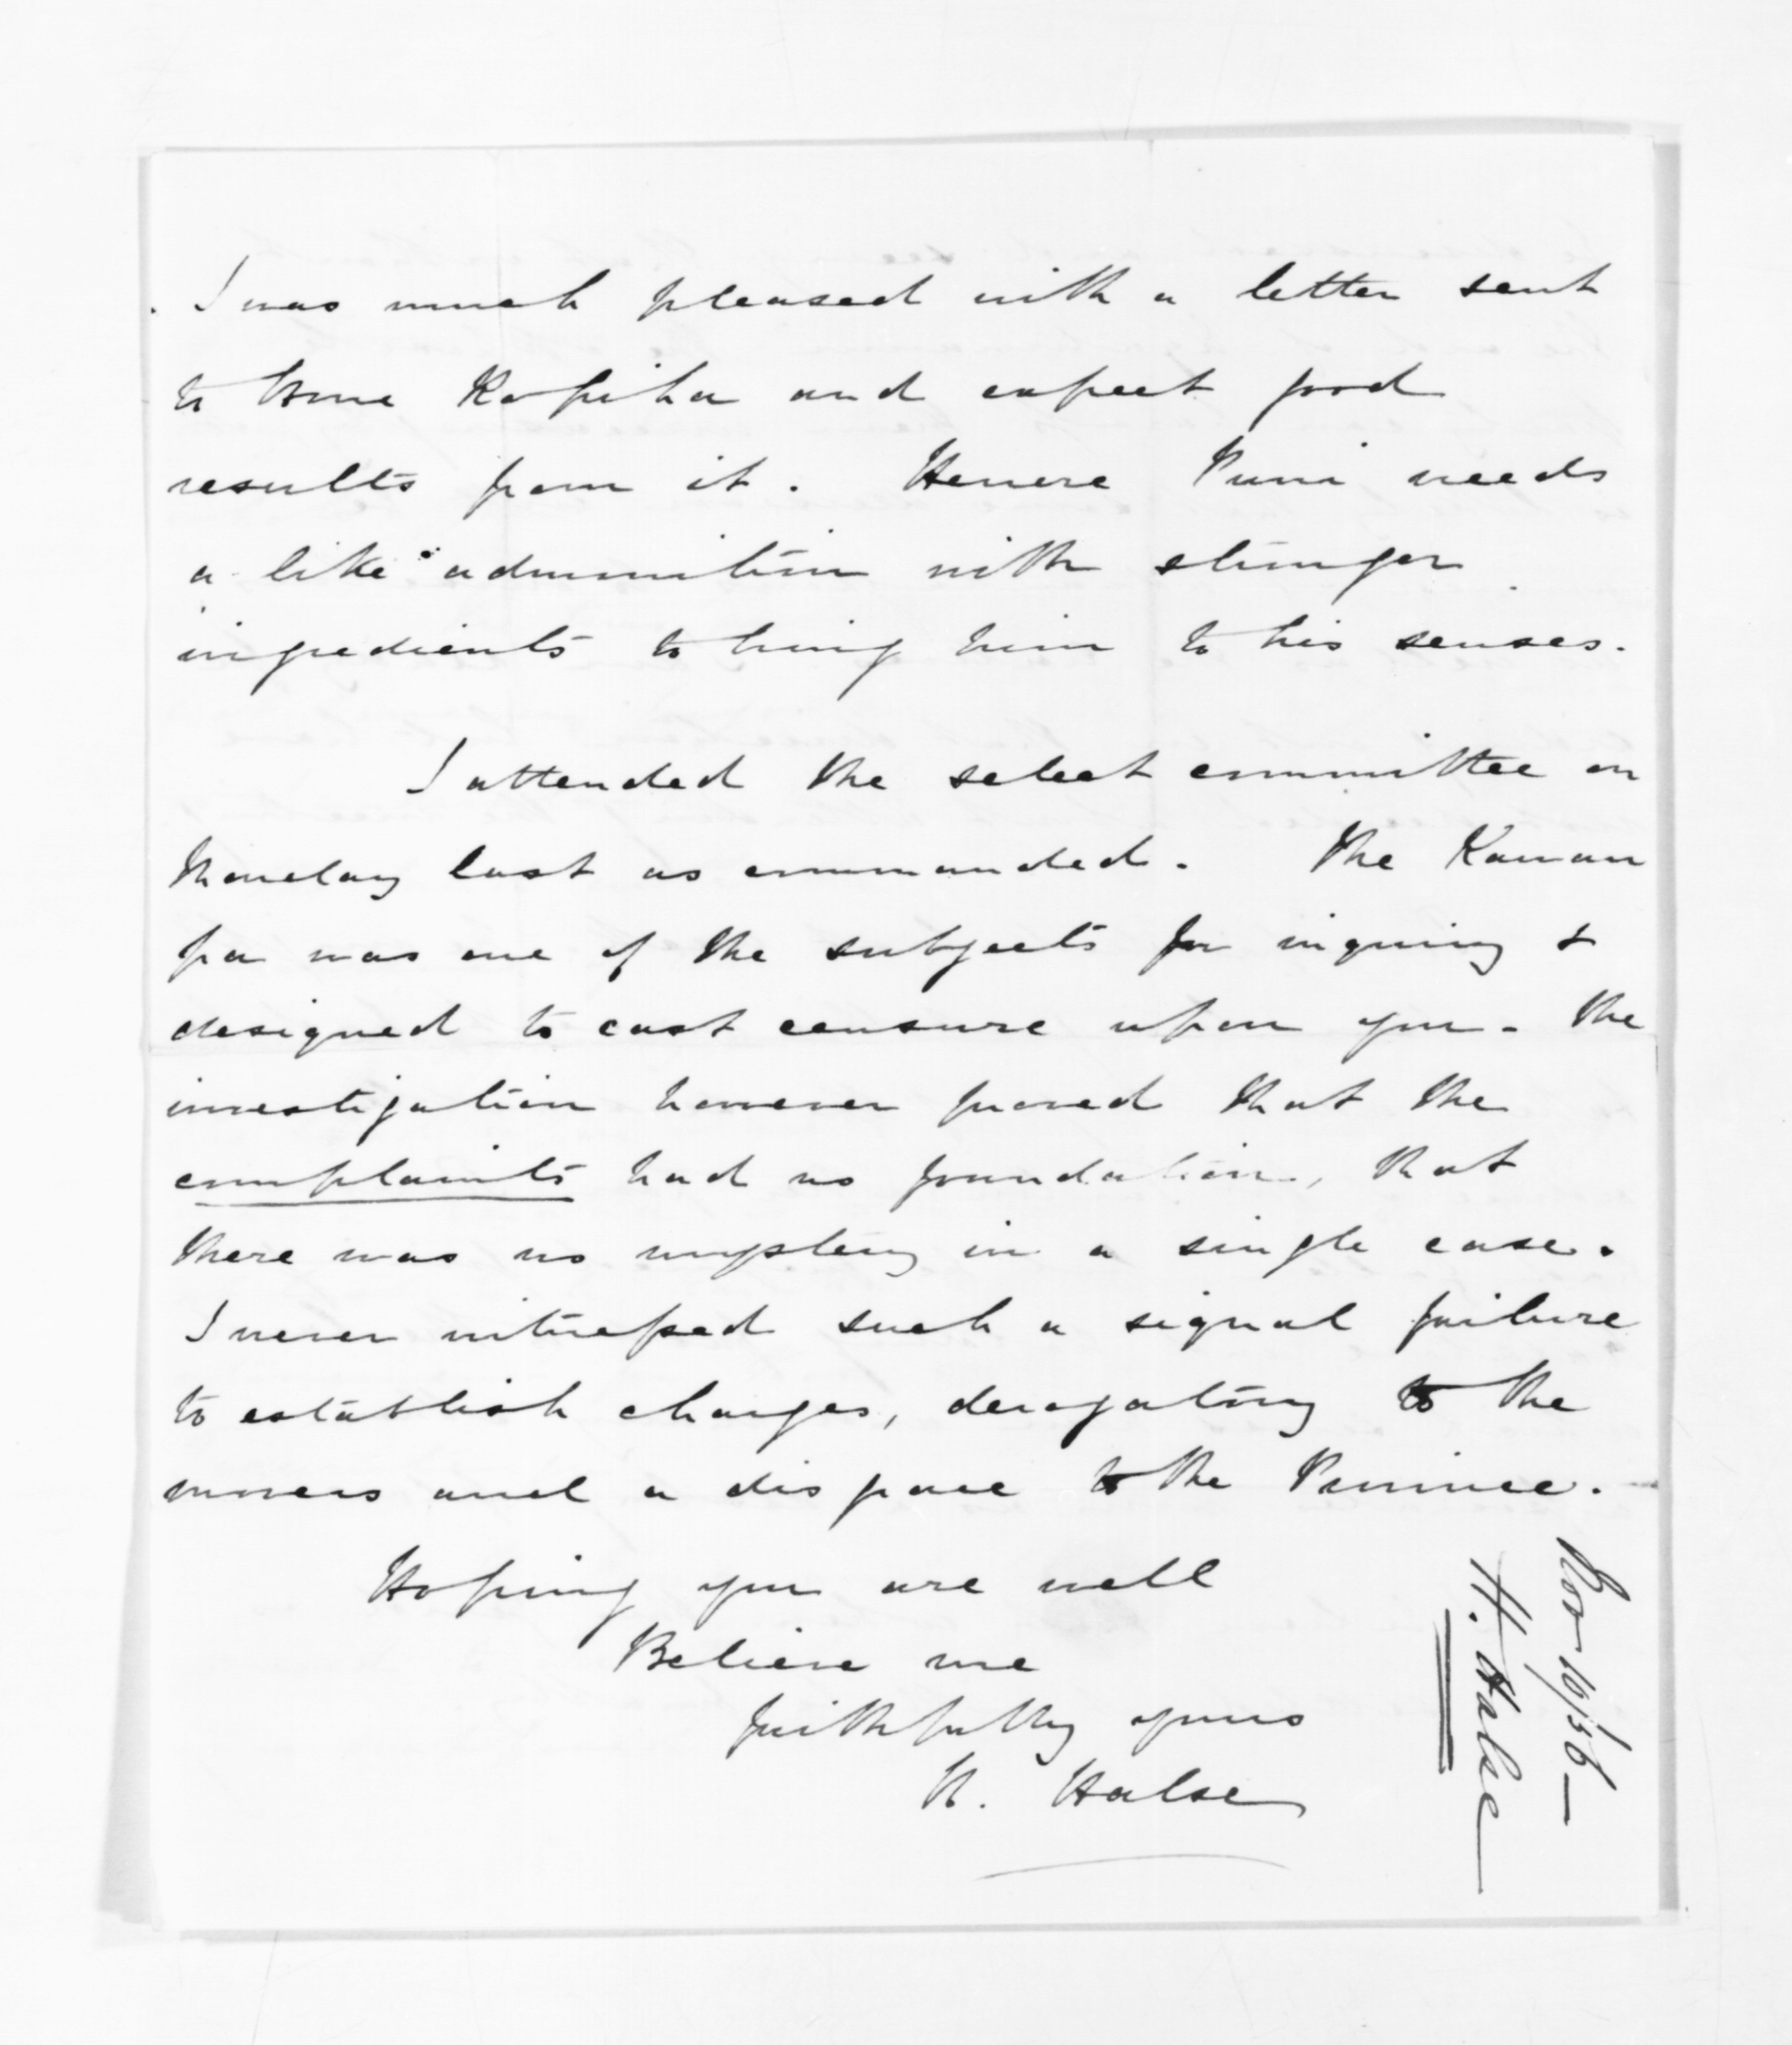 I was much pleased with a letter sent
to Hone Ropiha and expect good
results from it. Henere Puni needs
a like admonition with stronger
ingredients to bring him to his senses.
I attended the select committee on
Monday last as commanded. The Kawau
pa was one of the subjects for inquiry &
designed to cast censure upon you. The
investigation however proved that the
complaints had no foundation, that
there was no mystery in a single case.
I never witnessed such a signal failure
to establish charges, derogatory to the
movers and a disgrace to the Province.
Hoping you are well
Believe me
faithfully yours
H. Halse
Nov 10/56
H. Halse